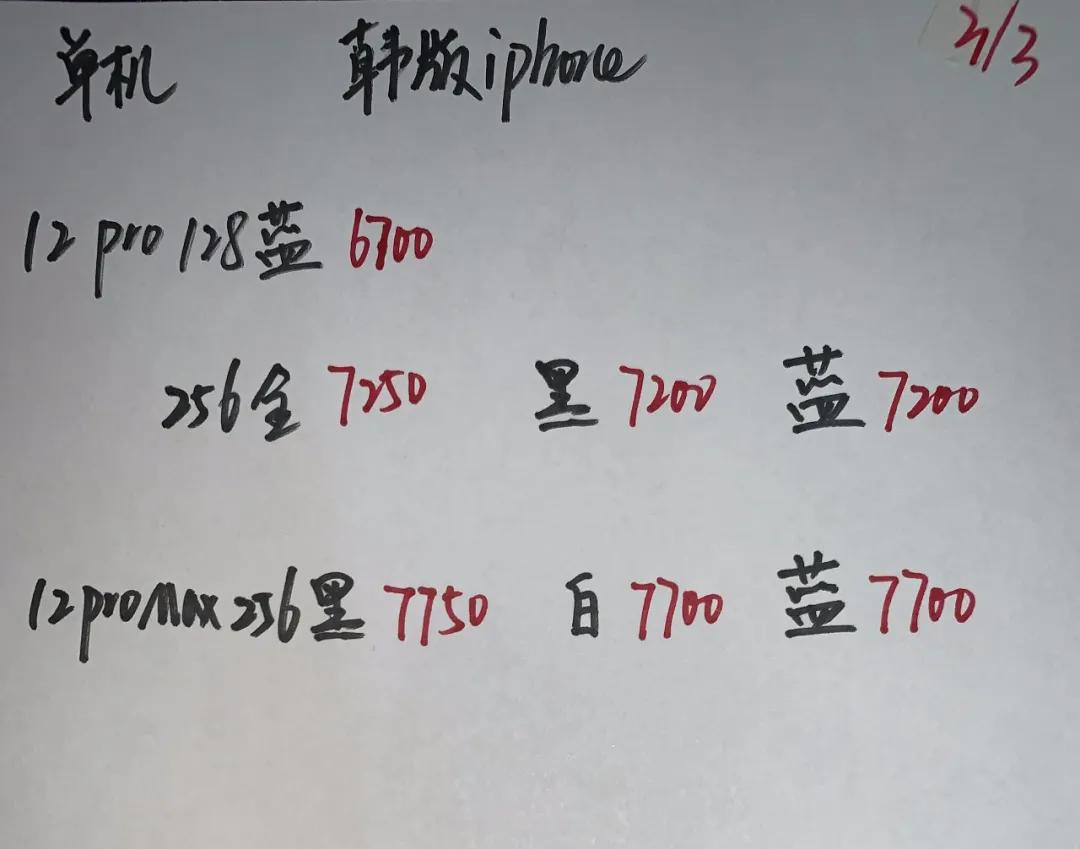 单机 韩版iphone 3/3
12 pro 128蓝 6700
256金 7250 黑 7200 蓝 7200
12promax 256黑 7750 白 7700 蓝 7700